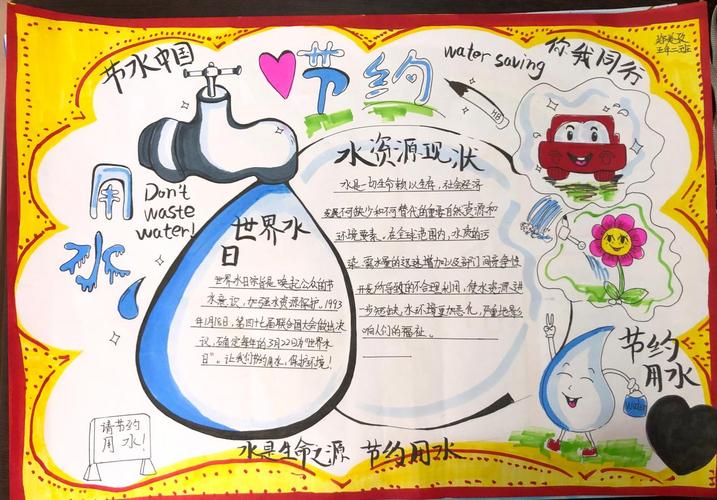 节水中国
节约
water saving
你我同行
五年二班
用
水
Don't
waste
water!
世界水
日
世界水日宗旨是唤起公众的节
水意识，加强水资源保护。1993
年1月18日，第四十七届联合国大会做出决
议，确定每年的3月22日为“世界水
日”。让我们节约用水，保护环境！
水资源现状
水是一切生命赖以生存，社会经济
发展不可缺少和不可替代的重要自然资源和
环境要素。在全球范围内，水质的污
染 需水量的迅速增加以及部门间竞争性
开发所导致的不合理利用，使水资源进一
步短缺，水环境更加恶化，严重地影
响人们的福祉。
HB
节约
用水
Water
请节约
用水！
水是生命之源 节约用水